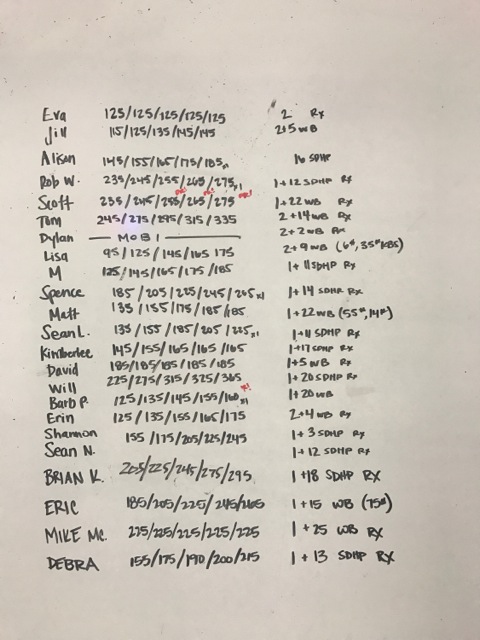 Eva 125/125/125/125/125 2 Rx
Jill 115/125/135/145/145 215 WB
Alison 145/155/165/175/185x1 16 SDHP
Rob W. 235/245/255/265/275x1 1+12 SDHP Rx
Scott 235/245/255/265/275 1+22 WB Rx
Tom 245/275/295/315/335 2+14 WB Rx
Dylan — MOBI — 2+2 WB Rx
Lisa 95/125/145/165 175 2+9 WB (6#, 35# KBS)
M 125/145/165/175/185 1+11 SDHP Rx
Spence 185/205/225/245/265x1 1+14 SDHP Rx
Matt 135/155/175/185/185 1+22 WB (55#, 14#)
Sean L. 135/155/185/205/225x1 1+11 SDHP Rx
Kimberlee 145/155/165/165/165 1+17 SDHP Rx
David 185/185/185/185/185 1+5 WB Rx
Will 225/275/315/325/365 1+20 SDHP Rx
Barb P. 125/135/145/155/160x1 1+20 WB
Erin 125/135/155/165/175 2+4 WB Rx
Shannon 155/175/205/225/245 1+3 SDHP Rx
Sean N. 1+12 SDHP Rx
BRIAN K. 205/225/245/275/295 1+18 SDHP RX
ERIC 185/205/225/245/265 1+15 WB (75#)
MIKE MC. 225/225/225/225/225 1+25 WB RX
DEBRA 155/175/190/200/215 1+13 SDHP RX